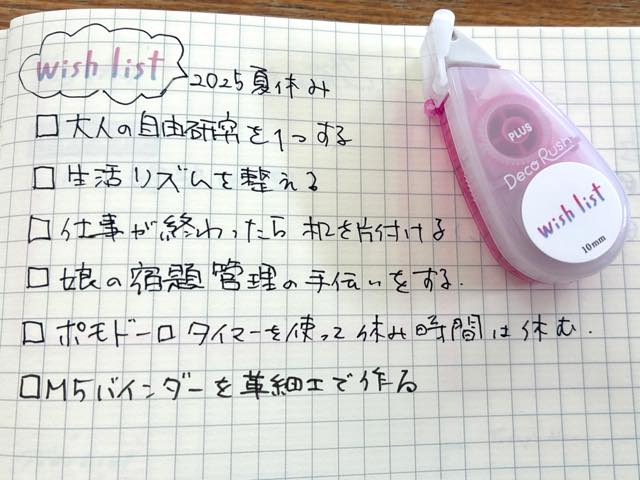 wish list
2025夏休み
□ 大人の自由研究を1つする
□ 生活リズムを整える
□ 仕事が終わったら机を片付ける
□ 娘の宿題管理の手伝いをする.
□ ポモドーロタイマーを使って休み時間は休む.
□ M5バインダーを革細工で作る
PLUS
Deco Rush
wish list
10mm